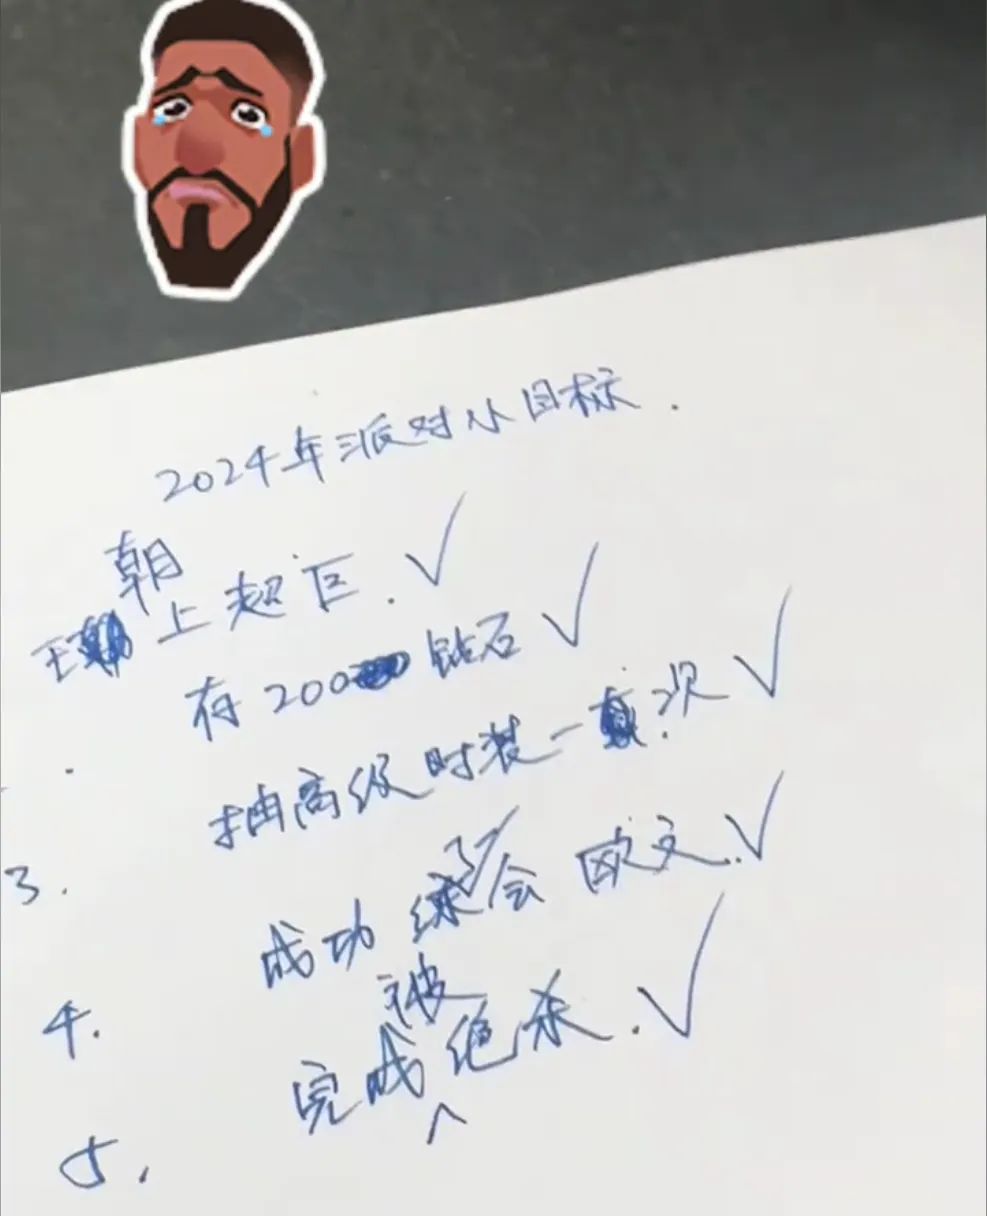 2024年派对小目标.
朝
王 上超巨. ✓
存200 钻石 ✓
抽高级时装一次 ✓
3.
成功 会 欧文. ✓
4.
被
完成绝杀. ✓
^
5.